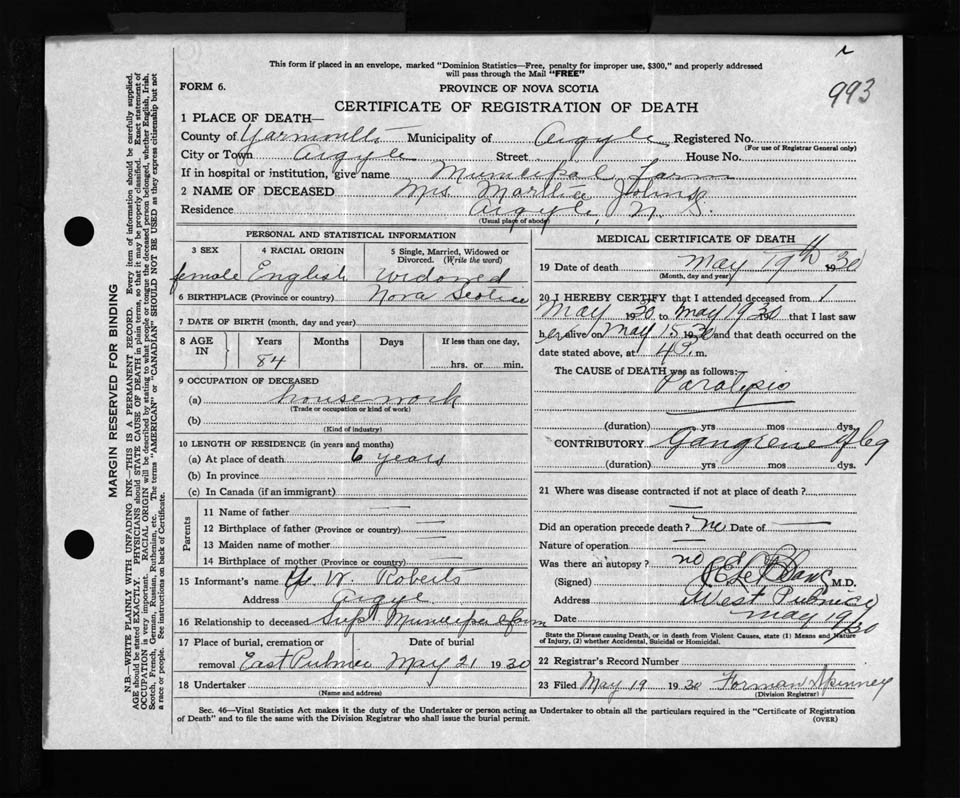 993
This form if placed in an envelope, marked "Dominion Statistics—Free, penalty for improper use, $300," and properly addressed
will pass through the Mail "FREE"
FORM 6.
PROVINCE OF NOVA SCOTIA
CERTIFICATE OF REGISTRATION OF DEATH
1 PLACE OF DEATH—
County of Yarmouth Municipality of Argyle Registered No.
(For use of Registrar General only)
City or Town Argyle Street House No.
If in hospital or institution, give name Municipal Farm
2 NAME OF DECEASED Mrs Johns
Residence Argyle, N. S.
(Usual place of abode)
PERSONAL AND STATISTICAL INFORMATION
3 SEX 4 RACIAL ORIGIN 5 Single, Married, Widowed or Divorced. (Write the word)
female English Widowed
6 BIRTHPLACE (Province or country) Nova Scotia
7 DATE OF BIRTH (month, day and year)
8 AGE IN Years Months Days If less than one day,
84 hrs. or min.
9 OCCUPATION OF DECEASED
(a) house work
(Trade or occupation or kind of work)
(b)
(Kind of industry)
10 LENGTH OF RESIDENCE (in years and months)
(a) At place of death 6 years
(b) In province
(c) In Canada (if an immigrant)
Parents
11 Name of father —
12 Birthplace of father (Province or country) —
13 Maiden name of mother —
14 Birthplace of mother (Province or country) —
15 Informant's name W. Roberts
Address Argyle
16 Relationship to deceased Supt Municipal farm
17 Place of burial, cremation or removal Date of burial
East Pubnico May 21 1930
18 Undertaker
(Name and address)
MEDICAL CERTIFICATE OF DEATH
19 Date of death May 19th 1930
(Month, day and year)
20 I HEREBY CERTIFY that I attended deceased from 1
May 1930 to May 19 30 that I last saw
her alive on May 15 30 and that death occurred on the
date stated above, at 4 m.
The CAUSE of DEATH was as follows:
Paralysis
(duration) yrs mos dys.
CONTRIBUTORY Gangrene of leg
(duration) yrs mos dys.
21 Where was disease contracted if not at place of death?
—
Did an operation precede death? no Date of —
Nature of operation —
Was there an autopsy? no
(Signed) LeBlanc M.D.
Address West Pubnico
Date May 19 1930
State the Disease causing Death, or in death from Violent Causes, state (1) Means and Nature
of Injury, (2) whether Accidental, Suicidal or Homicidal.
22 Registrar's Record Number
23 Filed May 19 1930 Forman Spinney
(Division Registrar)
Sec. 46—Vital Statistics Act makes it the duty of the Undertaker or person acting as Undertaker to obtain all the particulars required in the "Certificate of Registration
of Death" and to file the same with the Division Registrar who shall issue the burial permit.
(OVER)
MARGIN RESERVED FOR BINDING
N.B.—WRITE PLAINLY WITH UNFADING INK—THIS IS A PERMANENT RECORD. Every item of information should be carefully supplied.
AGE should be stated EXACTLY. PHYSICIANS should STATE CAUSE OF DEATH in plain terms, so that it may be properly classified. Exact statement of
OCCUPATION is very important. RACIAL ORIGIN will be described by stating to what people or tongue the deceased person belonged, whether English, Irish,
Scotch, French, German, Russian, Ruthenian, etc. The terms "AMERICAN" or "CANADIAN" SHOULD NOT BE USED as they express citizenship but not
a race or people. See instructions on back of Certificate.